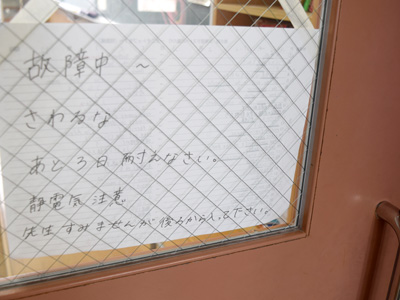 故障中 ～
さわるな
あと3日 耐えなさい。
静電気 注意
先生 すみませんが 後ろから入って下さい。